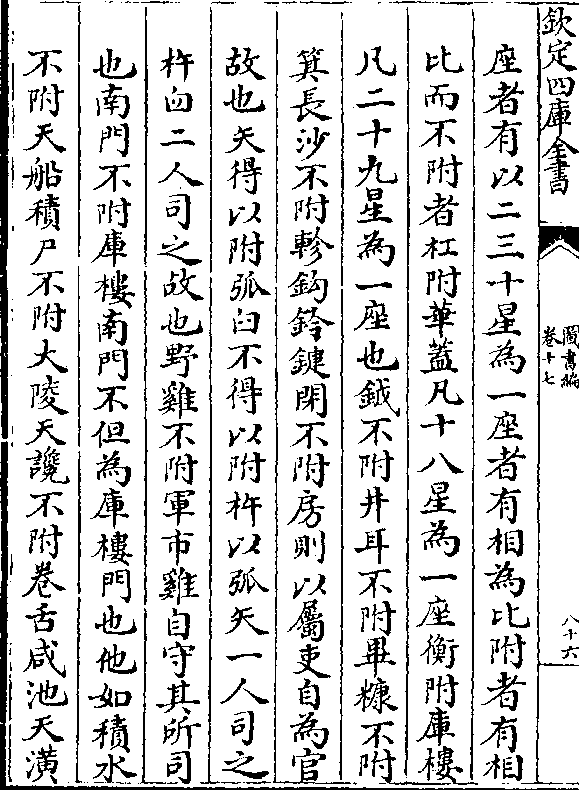 欽定四庫全書
圖書編
卷十七
八十六
座者有以二三十星為一座者有相為比附者有相
比而不附者杠附華蓋凡十八星為一座衡附庫樓
凡二十九星為一座也鉞不附井耳不附畢糠不附
箕長沙不附軫鈎鈐鍵閉不附房則以屬吏自為官
故也矢得以附弧臼不得以附杵以弧矢一人司之
杵臼二人司之故也野雞不附軍市雞自守其所司
也南門不附庫樓南門不但為庫樓門也他如積水
不附天船積尸不附大陵天讒不附卷舌咸池天潢